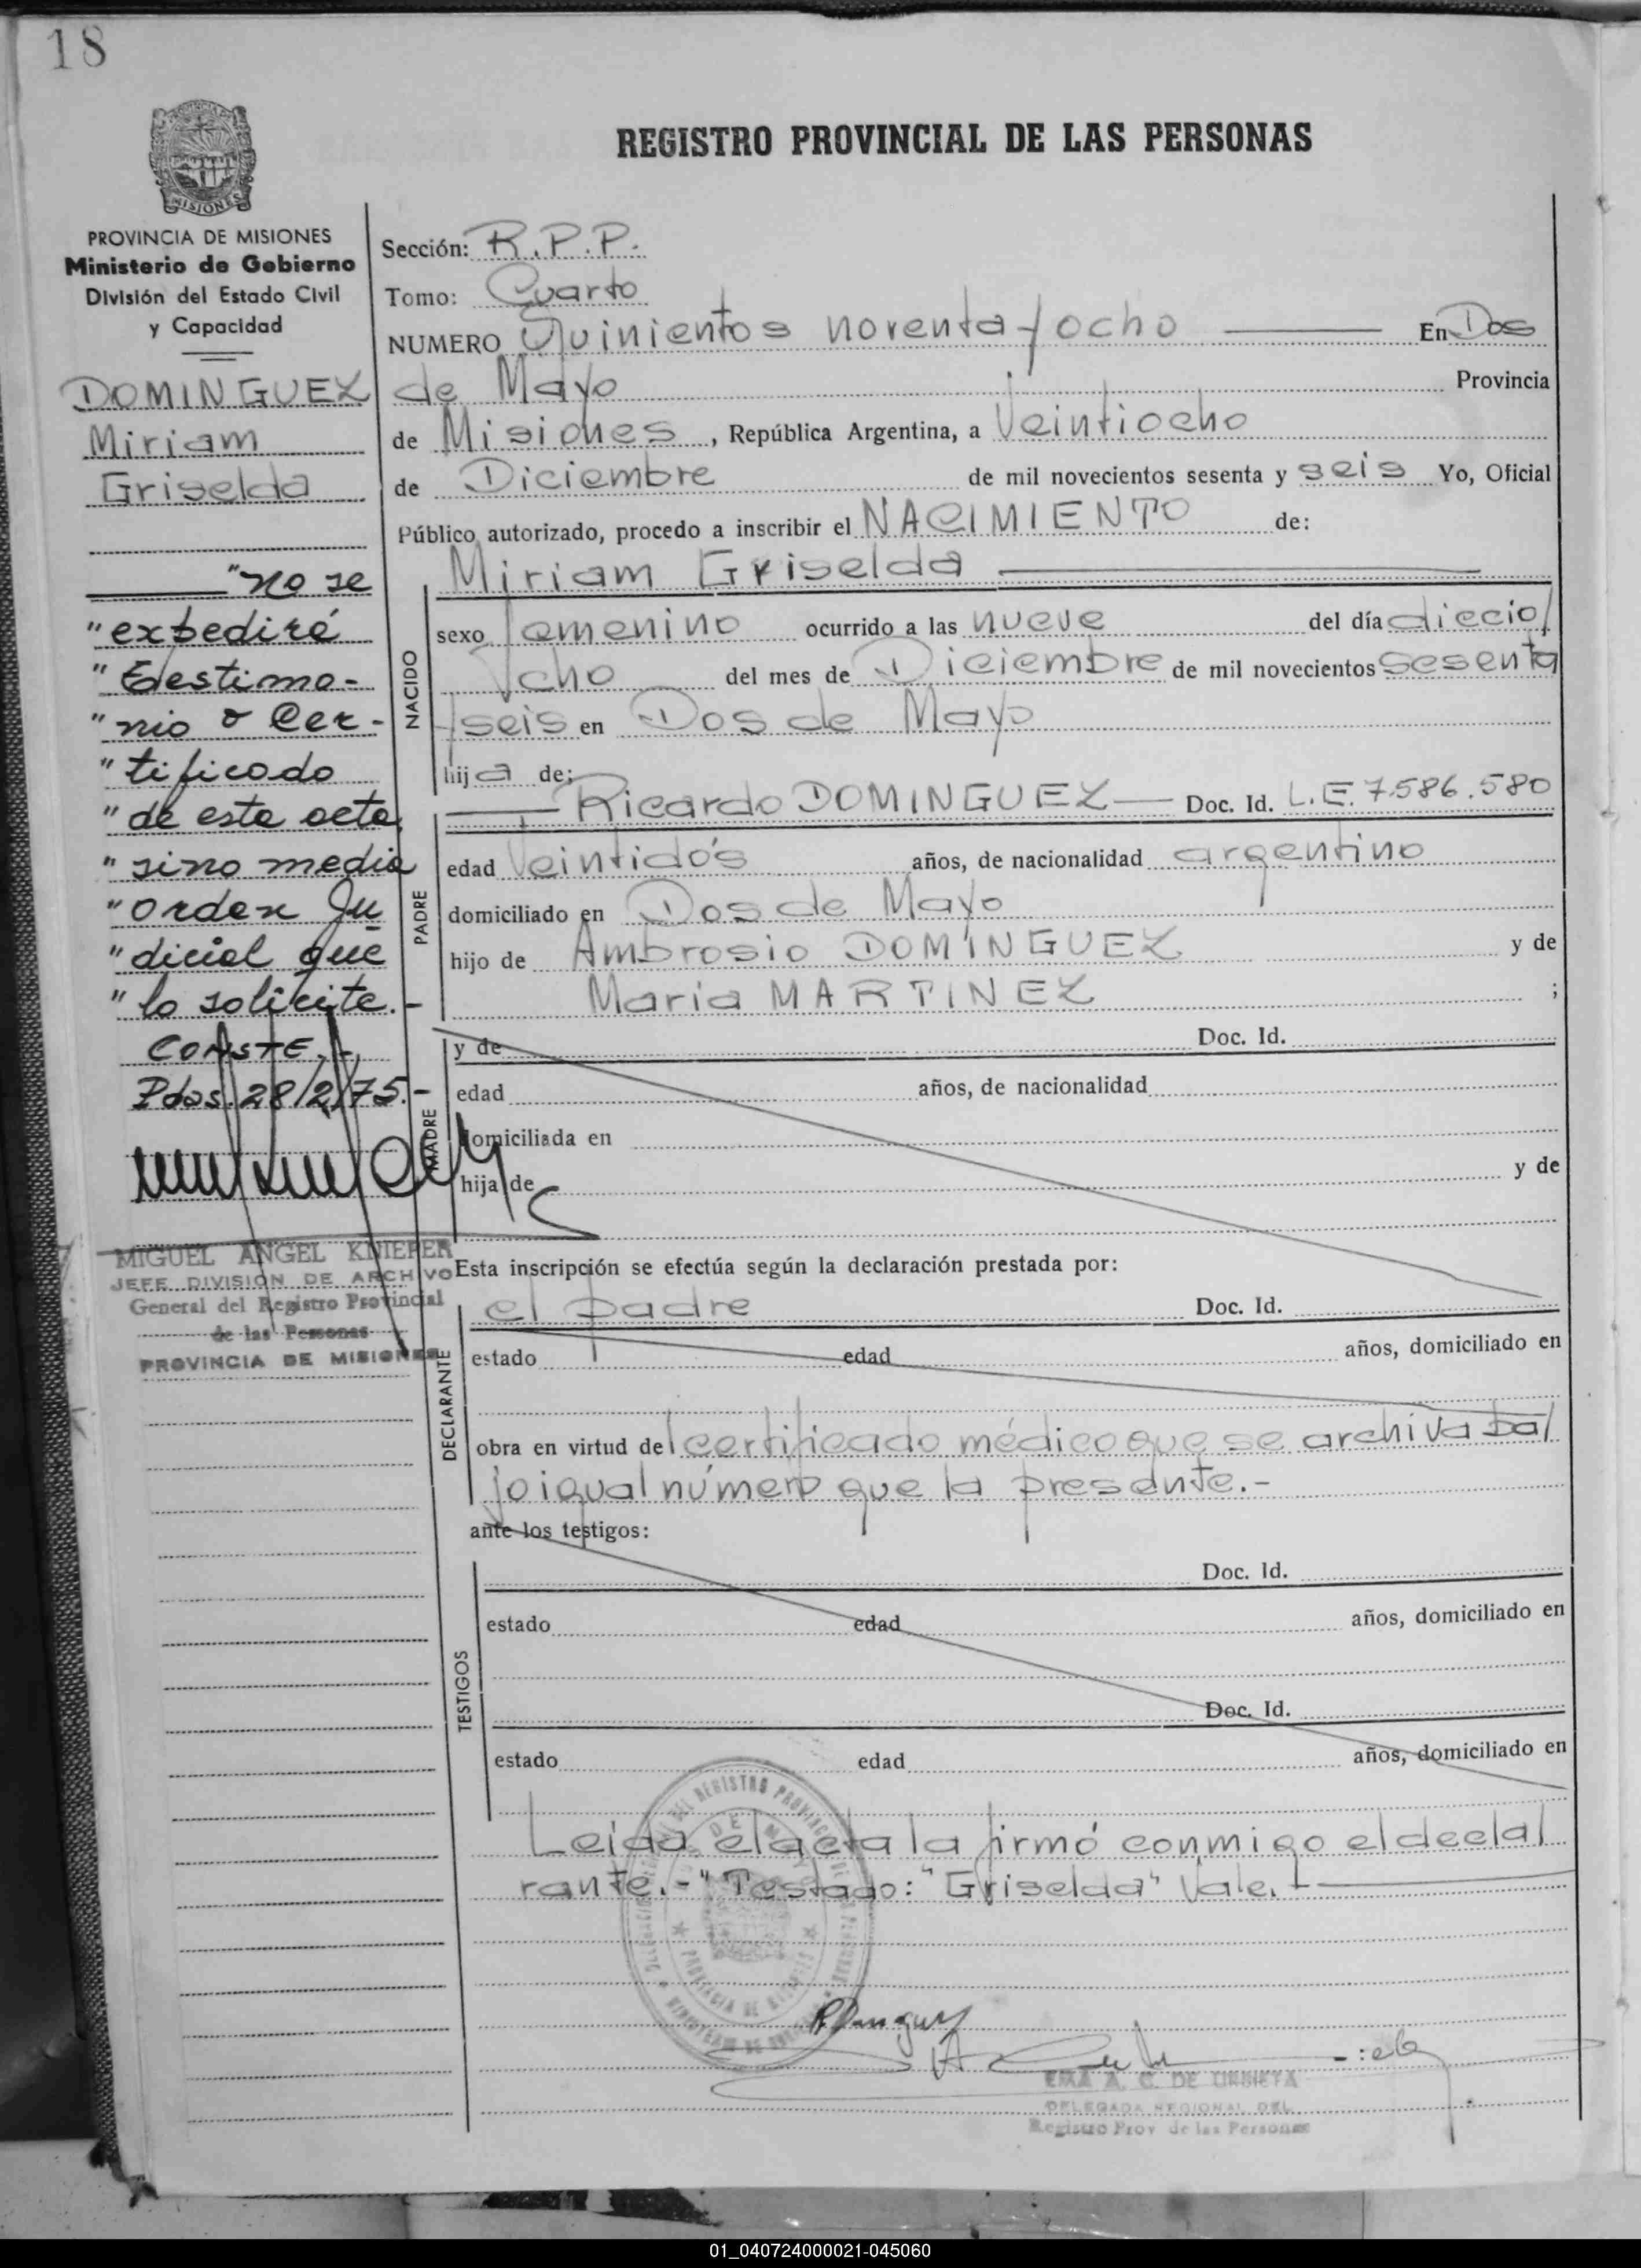 18
MISIONES
REGISTRO PROVINCIAL DE LAS PERSONAS
PROVINCIA DE MISIONES
Ministerio de Gobierno
División del Estado Civil
y Capacidad
DOMINGUEZ
Miriam
Griselda
"No se
"expediré
"Testimo-
"nio o Cer-
"tificado
"de esta acta
"sino media
"orden Ju
"dicial que
"lo solicite.-
CONSTE.-
Pdas. 28/2/75.-
MIGUEL ANGEL KNIEPER
JEFE DIVISIÓN DE ARCHIVO
General del Registro Provincial
de las Personas
PROVINCIA DE MISIONES
Sección: R.P.P.
Tomo: Cuarto
NUMERO Quinientos noventa y ocho En Dos
de Mayo Provincia
de Misiones, República Argentina, a Veintiocho
de Diciembre de mil novecientos sesenta y seis Yo, Oficial
Público autorizado, procedo a inscribir el NACIMIENTO de:
Miriam Griselda
NACIDO
sexo femenino ocurrido a las nueve del día diecio/
ocho del mes de Diciembre de mil novecientos sesenta
/seis en Dos de Mayo
hija de:
Ricardo DOMINGUEZ Doc. Id. L.E. 7.586.580
PADRE
edad Veintidós años, de nacionalidad argentino
domiciliado en Dos de Mayo
hijo de Ambrosio DOMINGUEZ y de
Maria MARTINEZ ;
MADRE
y de Doc. Id.
edad años, de nacionalidad
domiciliada en
hija de y de
Esta inscripción se efectúa según la declaración prestada por:
DECLARANTE
el padre Doc. Id.
estado edad años, domiciliado en
obra en virtud del certificado médico que se archiva ba/
jo igual número que la presente.-
ante los testigos:
TESTIGOS
Doc. Id.
estado edad años, domiciliado en
Doc. Id.
estado edad años, domiciliado en
Leida el acta la firmó conmigo el decla/
rante.-"Testado: "Griselda" Vale.
EMA A. C. DE URBIETA
DELEGADA REGIONAL DEL
Registro Prov de las Personas
01_040724000021-045060